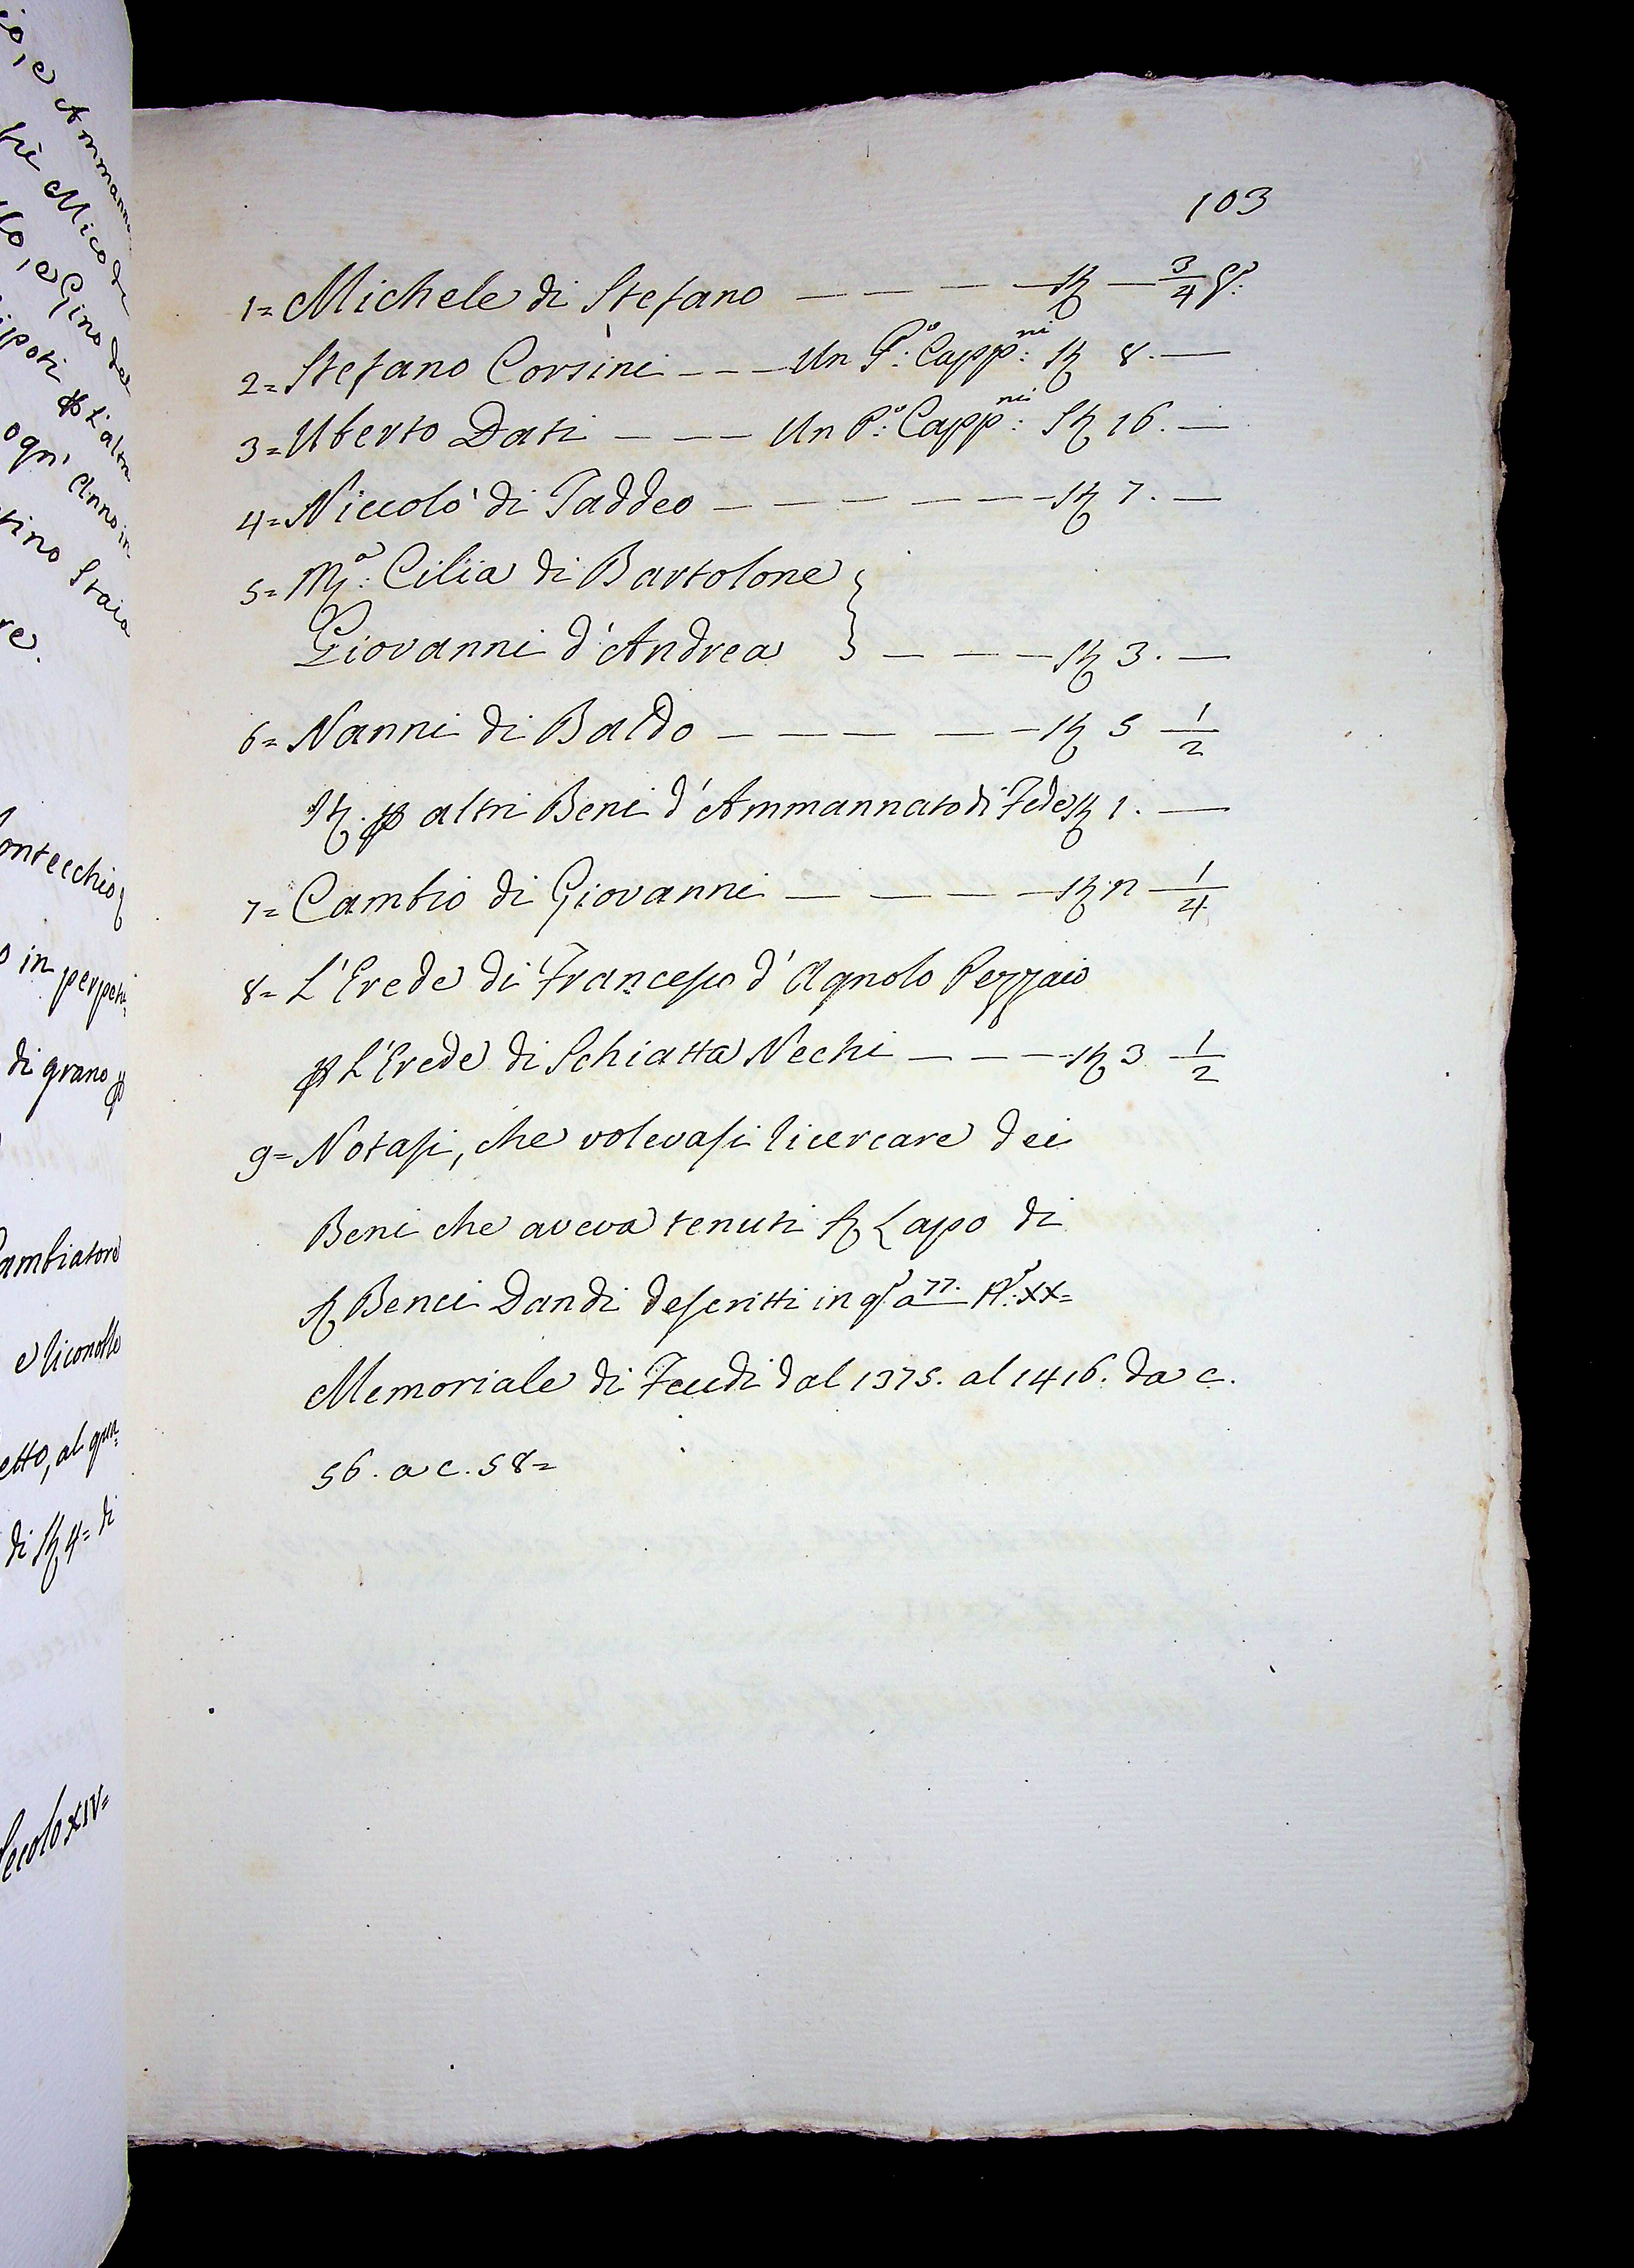 103
1= Michele di Stefano — — — — St — 3/4 gr:
2= Stefano Corsini — — — Un P.o: Capp:ni St 8. —
3= Uberto Dati — — — Un P.o: Capp:ni St 16. —
4= Niccolò di Taddeo — — — — — — St 7. —
5= M.a: Cilia di Bartolone }
Giovanni d'Andrea } — — — St 3. —
6= Nanni di Baldo — — — — — St 5 1/2
St. p altri Beni d'Ammannato di Fede St 1. —
7= Cambio di Giovanni — — — — St n 1/4
8= L'Erede di Francesco d'Agnolo Pezzaio
p L'Erede di Schiatta Nechi — — — St 3 1/2
9= Notasi, che volevasi ricercare dei
Beni che aveva tenuti Lapo di
Benci Dandi descritti in a 77. XX=
Memoriale di Feudi dal 1375. al 1416. da c.
56. a c. 58=
io, e Ammann
Mico di
llo, e Gino del
ipoti p L'altra
ogn' Anno in
tino Staia
re.
ontecchio
o in perpetu=
di grano p
ambiatore
e riconosce
etto, al qua=
di St 4= di
Secolo XIV=